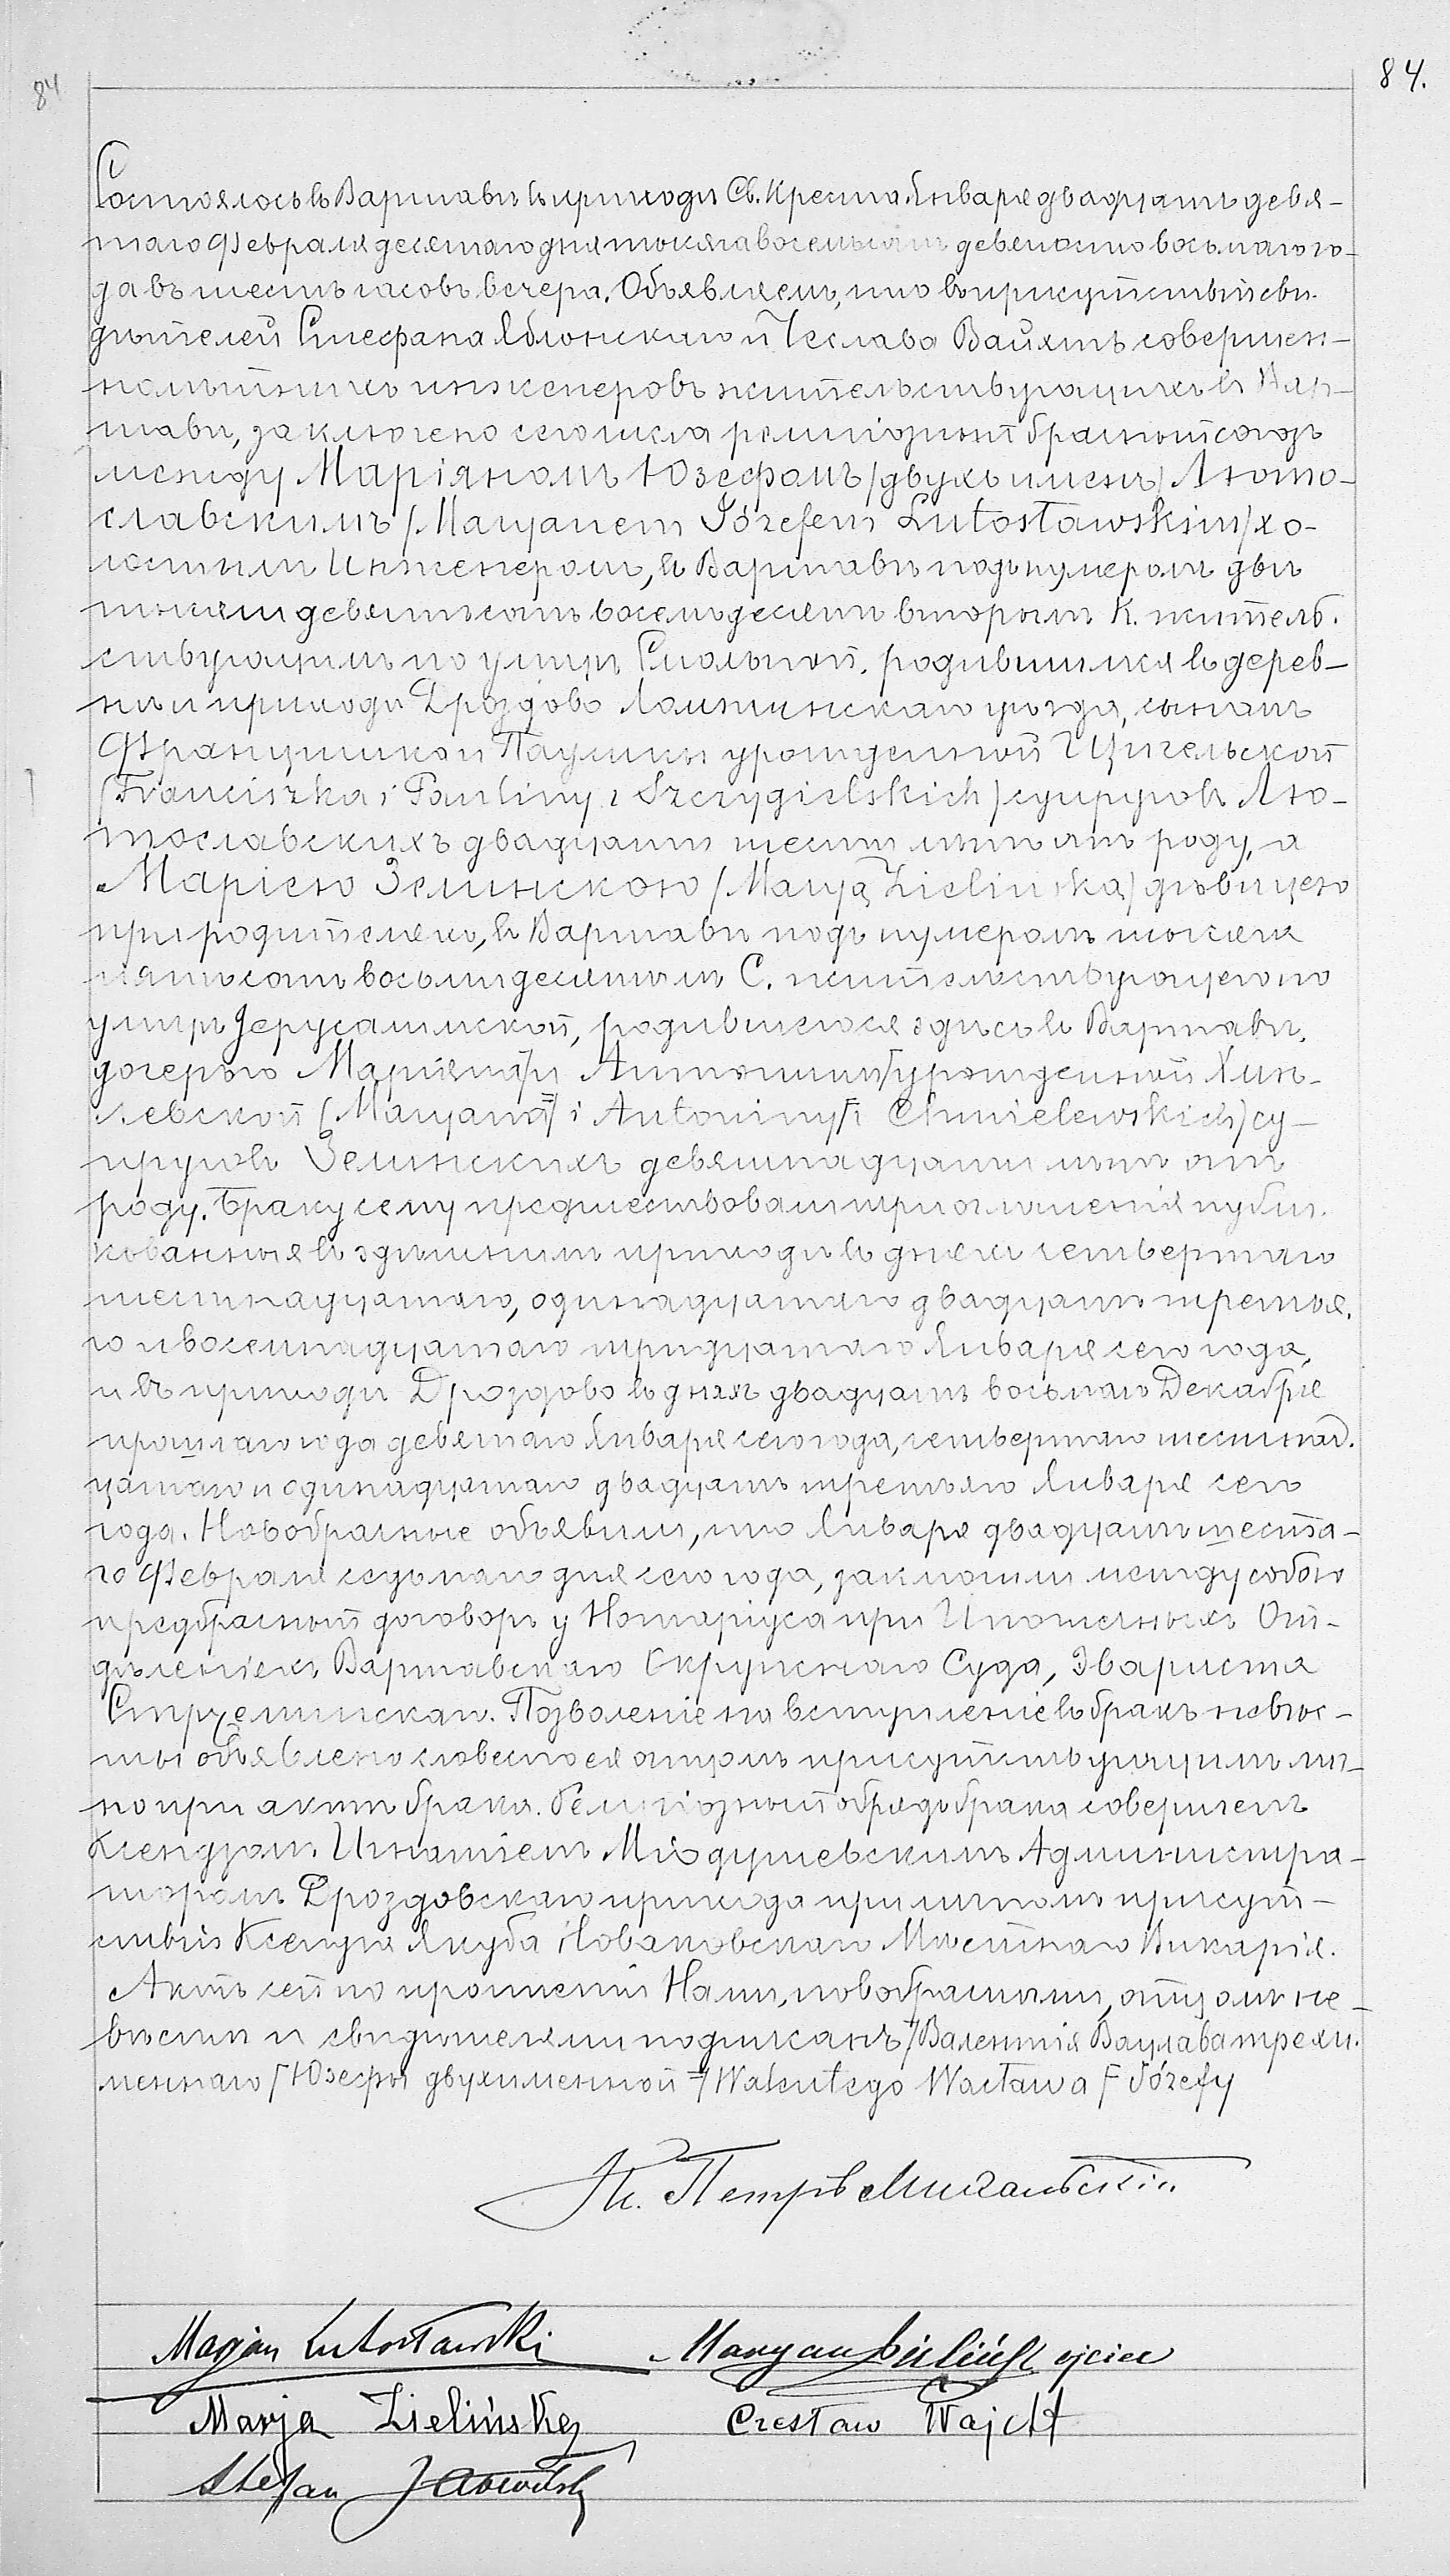 84
84.
Состоялось въ Варшавѣ въ приходѣ Св. Креста Января двадцать девя-
таго Февраля десятаго дня тысяча восемьсотъ девяносто восьмаго го-
да въ шесть часовъ вечера. Объявляемъ, что въ присутствіи сви-
дѣтелей Стефана Яблонскаго и Чеслава Вайхтъ совершен-
нолѣтнихъ инженеровъ жительствующихъ въ Вар-
шавѣ, заключено сего числа религіозный брачный союзъ
между Маріяномъ Юзефомъ /двухъ именъ/ Люто-
славскимъ /Maryanem Józefem Lutosławskim/ хо-
лостымъ Инженеромъ, въ Варшавѣ подъ нумеромъ двѣ
тысячи девятьсотъ восемьдесятъ вторымъ К. житель-
ствующимъ по улицѣ Смольной, родившимся въ дерев-
нѣ и приходѣ Дроздово Ломжинскаго уѣзда, сыномъ
Францишка и Паулины урожденной Щигельской
/Franciszka i Pauliny z Szczygielskich/ супруговъ Лю-
тославскихъ двадцати шести лѣтъ отъ роду, а
Маріею Зелинскою /Maryą Zielińską/ дѣвицею
при родителяхъ, въ Варшавѣ подъ нумеромъ тысяча
пятьсотъ восьмидесятымъ С. жительствующею по
улицѣ Іерусалимской, родившеюся здѣсь въ Варшавѣ,
дочерью Маріяна // и Антонины / урожденной Хмѣ-
левской /Maryana // i Antoniny / z Chmielewskich/ су-
пруговъ Зелинскихъ девятнадцати лѣтъ отъ
роду. Браку сему предшествовали три оглашенія публи-
кованныя въ здѣшнимъ приходѣ въ дняхъ четвертаго
шестнадцатаго, одинадцатаго двадцать третья-
го и восемнадцатаго тридцатаго Января сего года,
и въ приходѣ Дроздово въ дняхъ двадцать восьмаго Декабря
прошлаго года девятаго Января сего года, четвертаго шестнад-
цатаго и одинадцатаго двадцать третьяго Января сего
года. Новобрачные объявили, что Января двадцать шеста-
го Февраля седьмаго дня сего года, заключили между собою
предбрачный договоръ у Нотаріуса при Ипотечныхъ От-
дѣленіяхъ Варшавскаго Окружнаго Суда, Эвариста
Стржеминскаго. Позволеніе на вступленіе въ бракъ невѣс-
ты объявлено словесно ея отцомъ присутствующимъ лич-
но при актѣ брака. Религіозный обрядъ брака совершенъ
Ксендзомъ Игнатіемъ Міодушевскимъ Администра-
торомъ Дроздовскаго прихода при личномъ присут-
ствіи Ксендза Якуба Новаковскаго Мѣстнаго Викарія.
Актъ сей по прочтеніи Нами, новобрачными, отцомъ не-
вѣсты и свидѣтелями подписанъ // Валентія Вацлава трехи-
меннаго / Юзефы двухименной // Walentego Wacława / Józefy
Кс. Петръ
Maryan Lutosławski
Maryan Zieliński ojciec
Marja Zielińska
Czesław Wajcht
Stefan Jabłoński